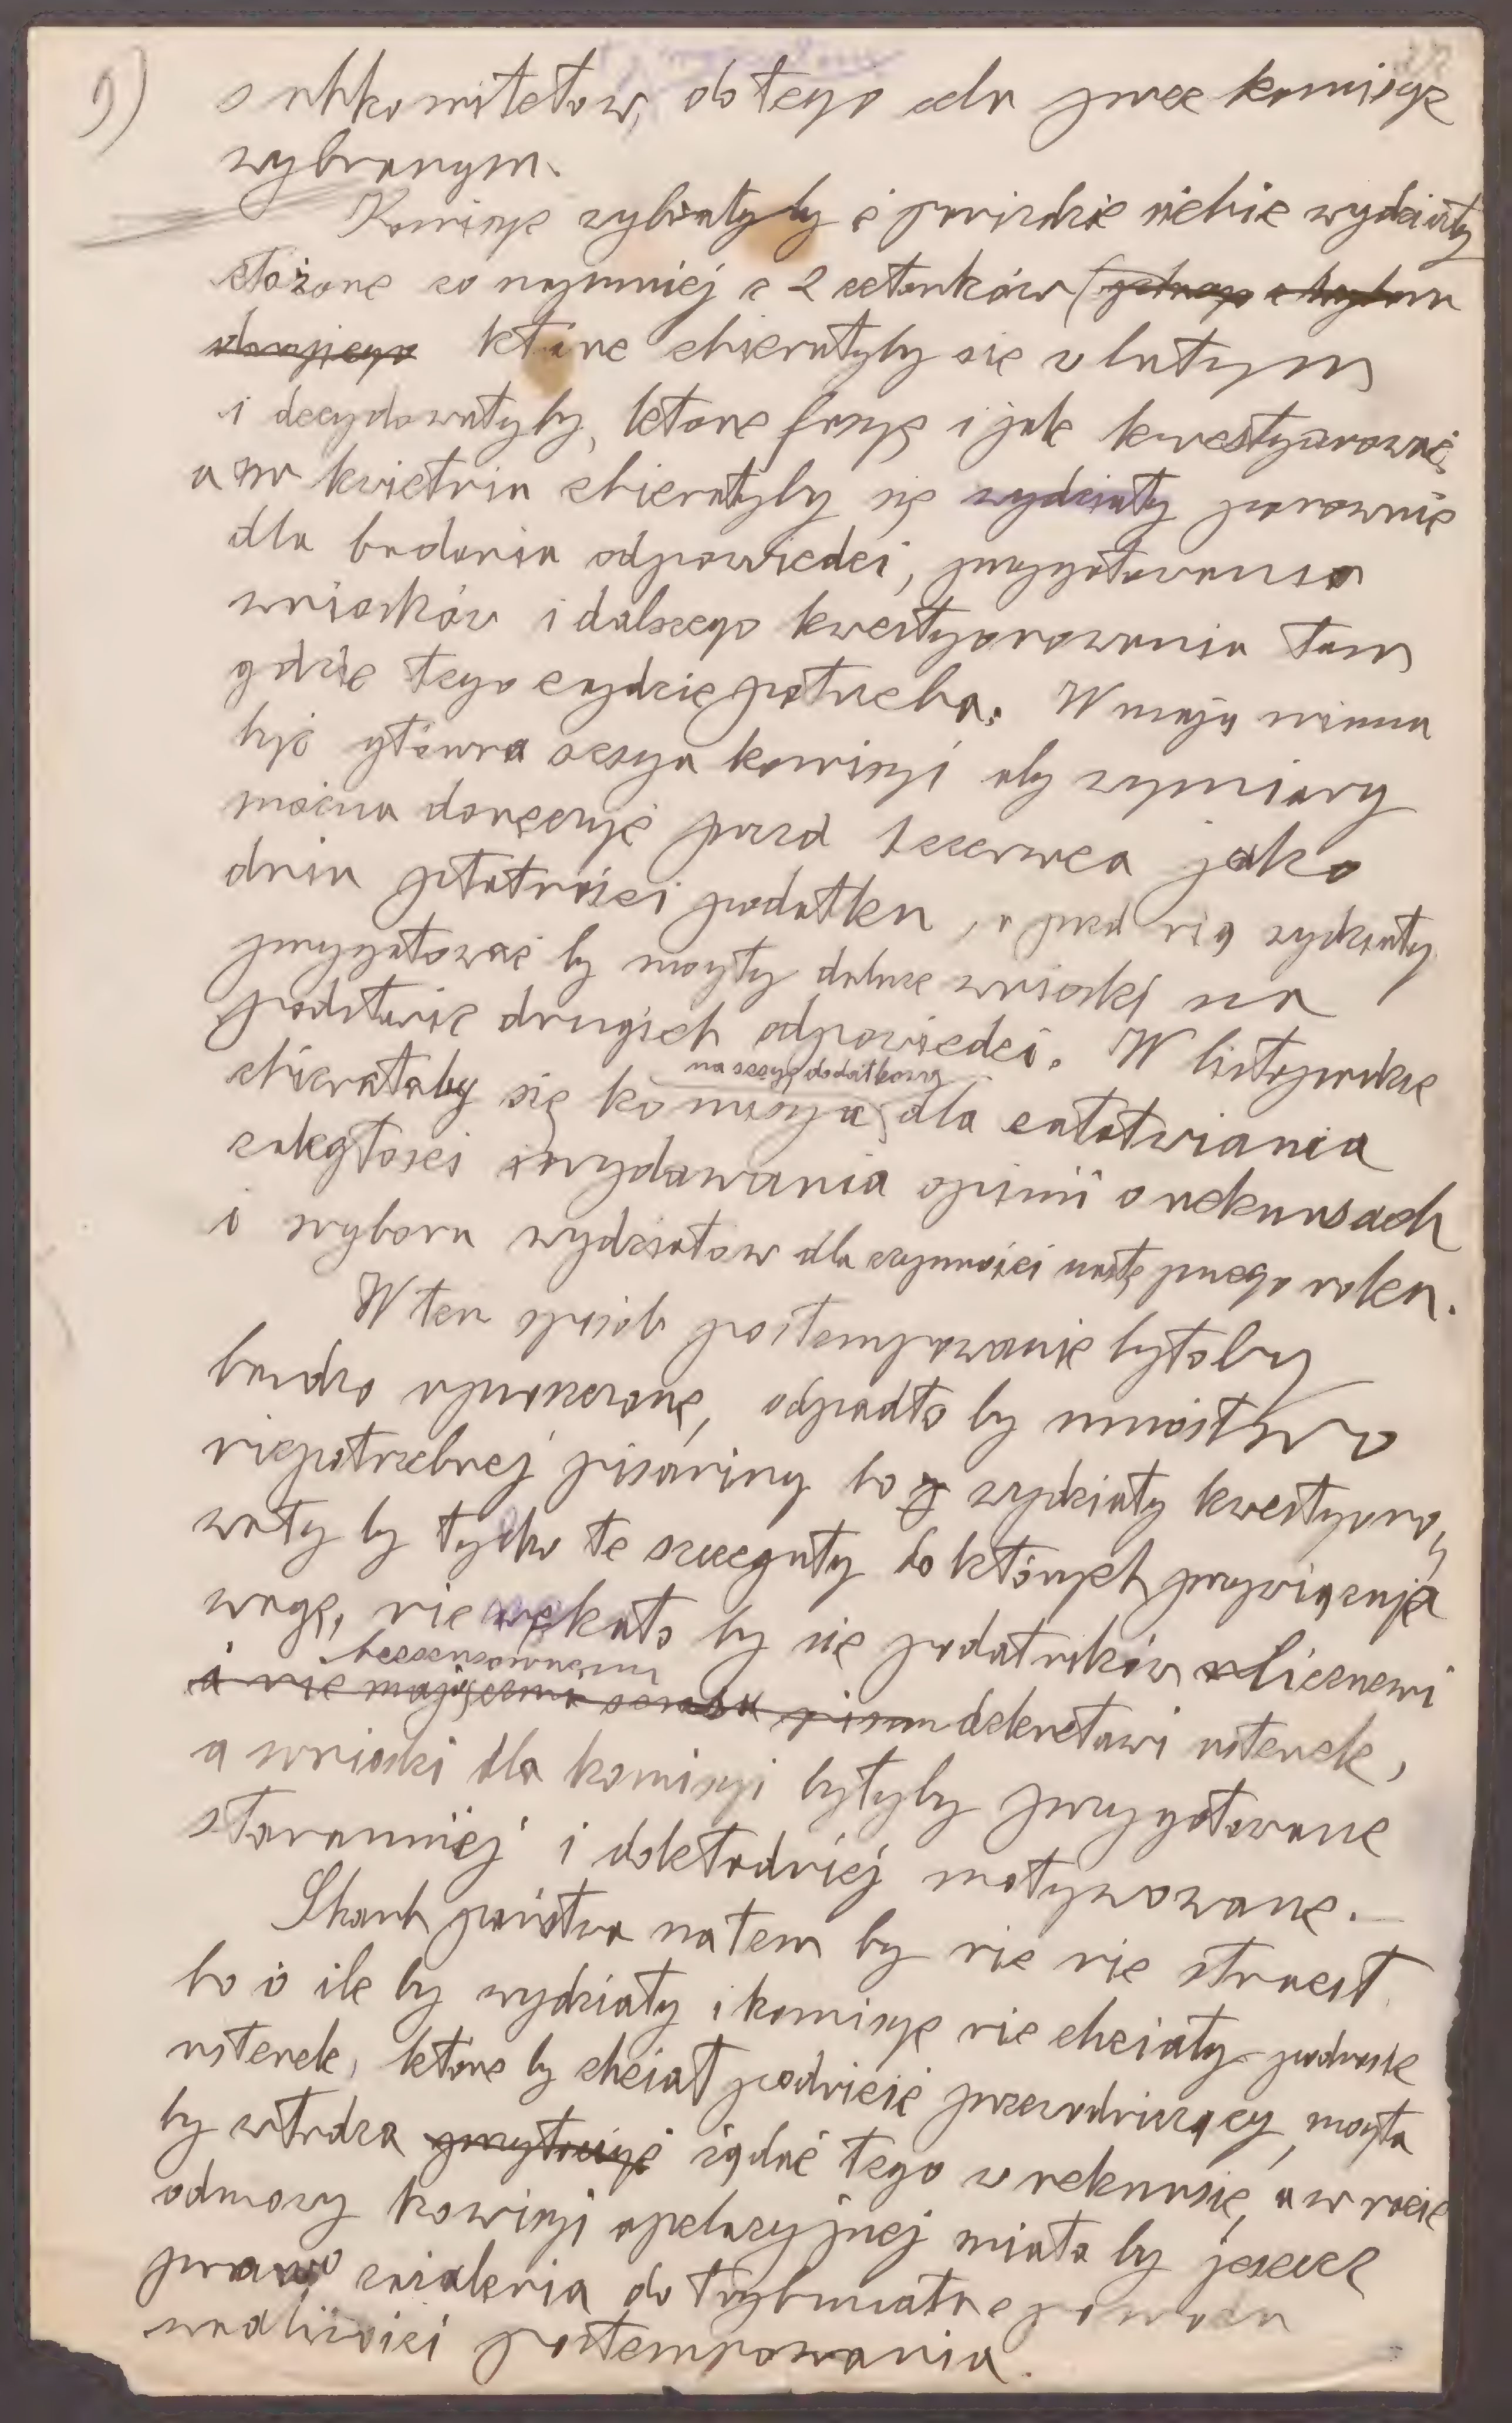 9)
subkomitetów, do tego celu przez komisye
wybranym.
Komisye wybrałyby z pośrodka siebie wydziały
złożone co najmniej z 2 członków (jednego z wyboru
drugiego które zbierałyby się w lutym
i decydowałyby, które fasye i jak kwestyonować,
a w kwietniu zbierałyby się wydziały ponownie
dla badania odpowiedzi, przygotowania
wniosków i dalszego kwestyonowania tam
gdzie tego zajdzie potrzeba. W maju winna
być główna sesya komisyi aby wymiary
można doręczyć przed 1 czerwca jako
dniem płatności podatku, a przed nią wydziały
przygotować by mogły dalsze wnioski na
podstawie drugich odpowiedzi. W listopadzie
na sesyę dodatkową
zbierałaby się komisya dla załatwiania
zaległości i wydawania opinii o rekursach
i wyboru wydziałów dla czynności następnego roku.
W ten sposób postempowanie byłoby
bardzo uproszczone, odpadło by mnóstwo
niepotrzebnej pisaniny bo wydziały kwestyono-
wały by tylko te szczegóły do których przywiązują
wagę, nie nękało by się podatników licznemi
bezsensownemi
i nie mającemi sensu pism dekretami usterek,
a wnioski dla komisyi byłyby przygotowane
staranniej i dokładniej motywowane.
Skarb państwa na tem by nic nie stracił
bo o ile by wydziały i komisye nie chciały podnieść
usterek, które by chciał podnieść przewodniczący, mogła
by władza żądać tego w rekursie, a w razie
odmowy komisyi apelacyjnej miała by jeszcze
prawo zażalenia do trybunału z powodu
wadliwości postempowania.